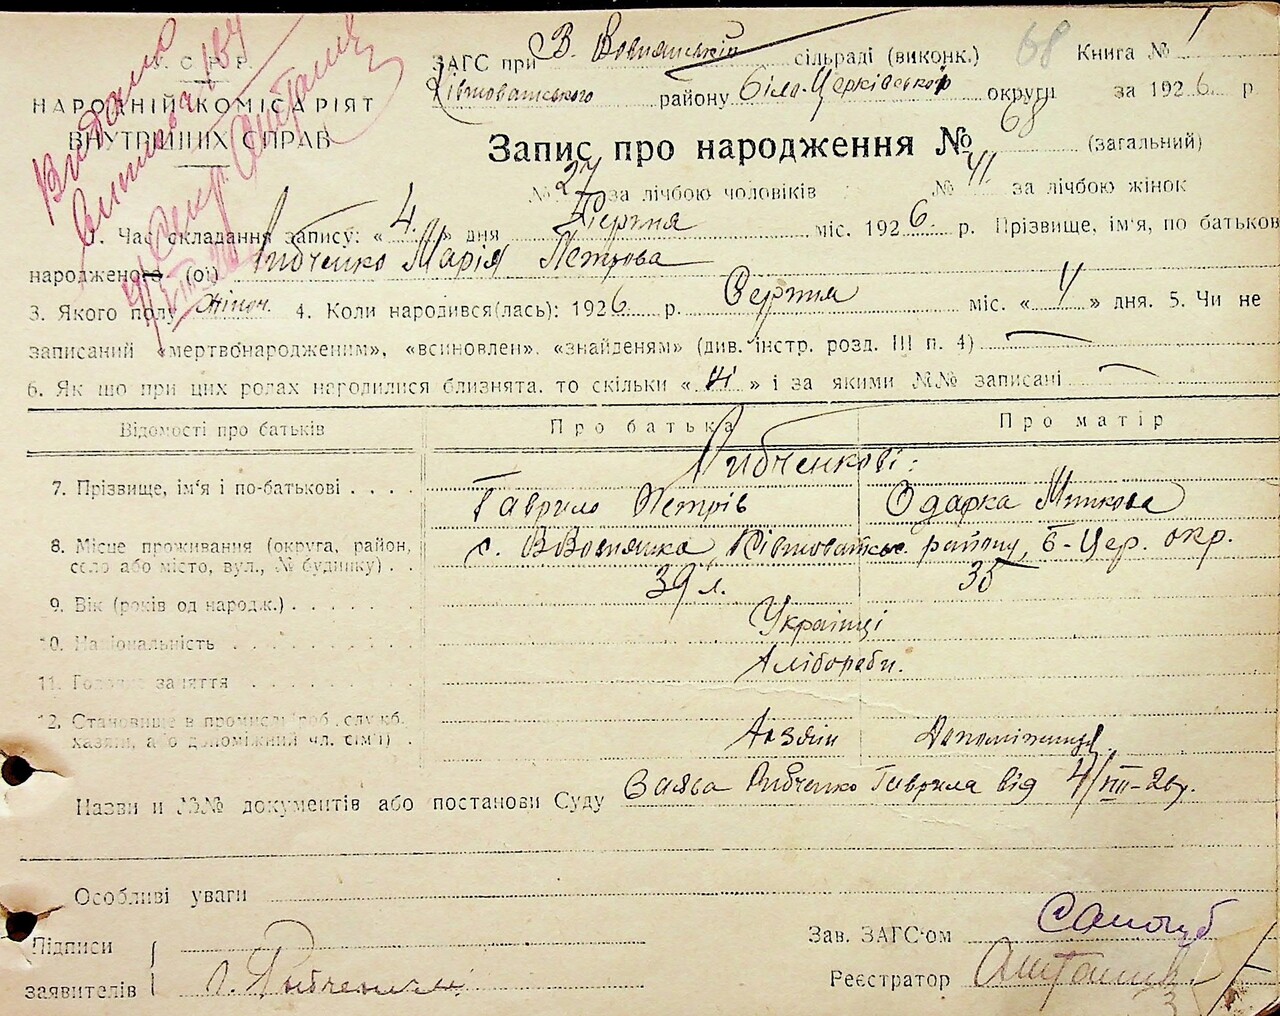 У. С. Р. Р.
НАРОДНІЙ КОМІСАРІЯТ
ВНУТРІШНІХ СПРАВ
Видано
ЗАГС при В. Вовнянській сільраді (виконк.) 68 Книга № 1
району Біло-Церківської округи за 1926 р.
Запис про народження № 68 (загальний)
№ 27 за лічбою чоловіків № 41 за лічбою жінок
1. Час складання запису: «4» дня Серпня міс. 1926 р. Прізвище, ім'я, по батькові
народженого (ої) Рибченко Марія Петрова
3. Якого полу жіноч. 4. Коли народився(лась): 1926 р. Серпня міс. «4» дня. 5. Чи не
записаний «мертвонародженим», «всиновлен», «знайденям» (див. інстр. розд. III п. 4) —
6. Як що при цих родах народилися близнята, то скільки « » і за якими №№ записані —
Відомості про батьків Про батька Про матір
Рибченкові:
7. Прізвище, ім'я і по-батькові . . . . Гаврило Петрів Одарка
8. Місце проживання (округа, район, с. В Вовнянка району, Б-Цер. окр.
село або місто, вул., № будинку) .
9. Вік (років од народж.) . . . . . . . 39 л. 35
10. Національність . . . . . . . . . Українці
11. Головне заняття . . . . . . . . Хлібороби.
12. Становище в промислі (роб., службб.
хазяїн, або допоміжний чл. сім'ї) . Хазяїн Допоміжниця
Назви и №№ документів або постанови Суду Заява Рибченко Гаврила від 4/VIII-26 р.
Особливі уваги
Підписи
заявителів
Зав. ЗАГС'ом
Реєстратор